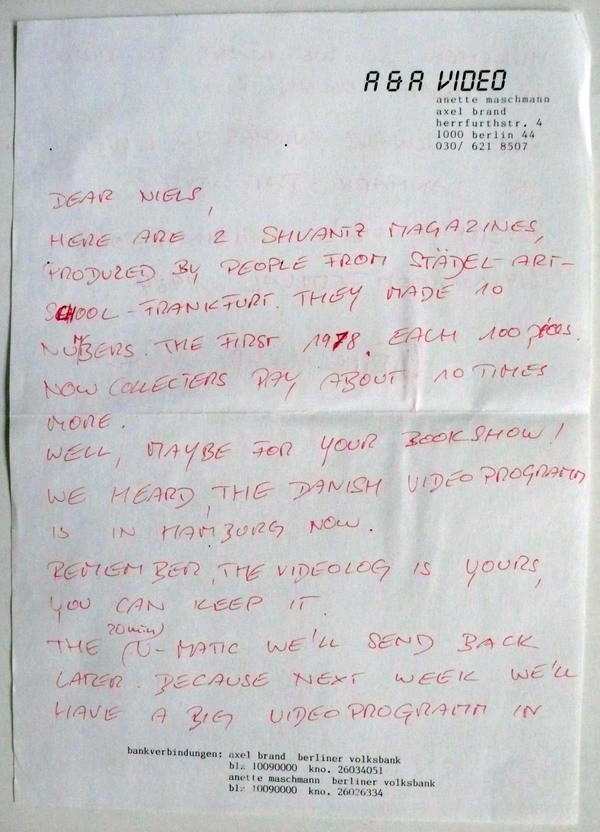 A & A VIDEO
anette maschmann
axel brand
herrfurthstr. 4
1000 berlin 44
030/ 621 8507
DEAR NIELS,
HERE ARE 2 SHVANTZ MAGAZINES,
PRODUZED BY PEOPLE FROM STÄDEL-ART-
SCHOOL-FRANKFURT. THEY MADE 10
NUMBERS. THE FIRST 1978. EACH 100 pieces.
NOW COLLECTERS PAY ABOUT 10 TIMES
MORE.
WELL, MAYBE FOR YOUR BOOKSHOW!
WE HEARD, THE DANISH VIDEOPROGRAMM
IS IN HAMBURG NOW.
REMEMBER, THE VIDEOLOG IS YOURS,
YOU CAN KEEP IT.
THE (20min) U-MATIC WE'LL SEND BACK
LATER. BECAUSE NEXT WEEK WE'LL
HAVE A BIG VIDEOPROGRAMM IN
bankverbindungen: axel brand berliner volksbank
blz 10090000 kno. 26034051
anette maschmann berliner volksbank
blz 10090000 kno. 26026334